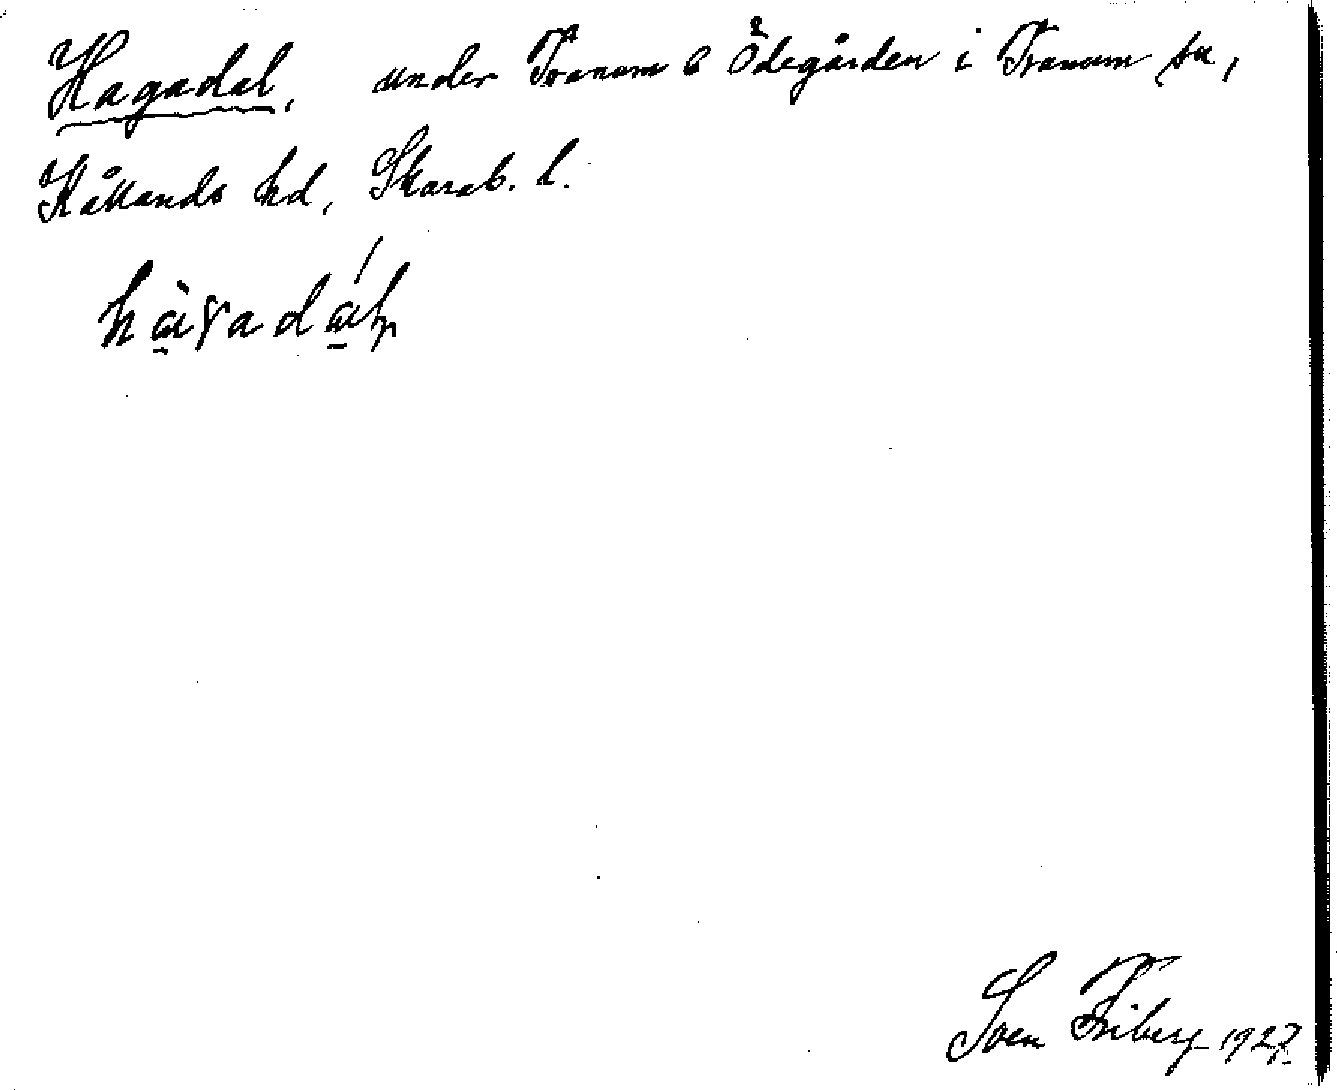 Hagadal, under Tranum 6 Ödegården i Tranum sn,
Kållands hd, Skarab. l.
Sven Friberg 1927.